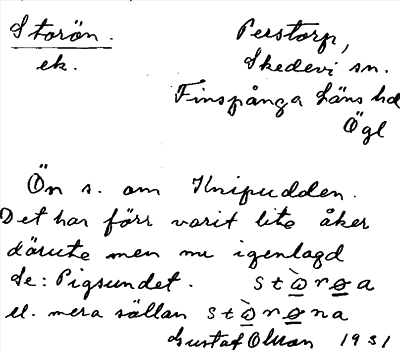 Storön. Perstorp,
ek. Skedevi sn.
Finspånga läns hd
Ögl
Ön s. om Knipudden.
Det har förr varit lite åker
därute men nu igenlagd
Se: Pigsundet. stὼ̲rɵ̲a
el. mera sällan stὼ̲nɵ̲na
Gustaf Olsson 1931